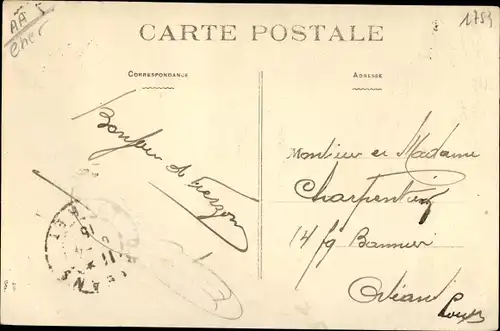 AA
Cher
1754
CARTE POSTALE
CORRESPONDANCE
ADRESSE
Bonjour de Vierzon
Monsieur et Madame
Charpentier
14 fg Bannier
Orléans